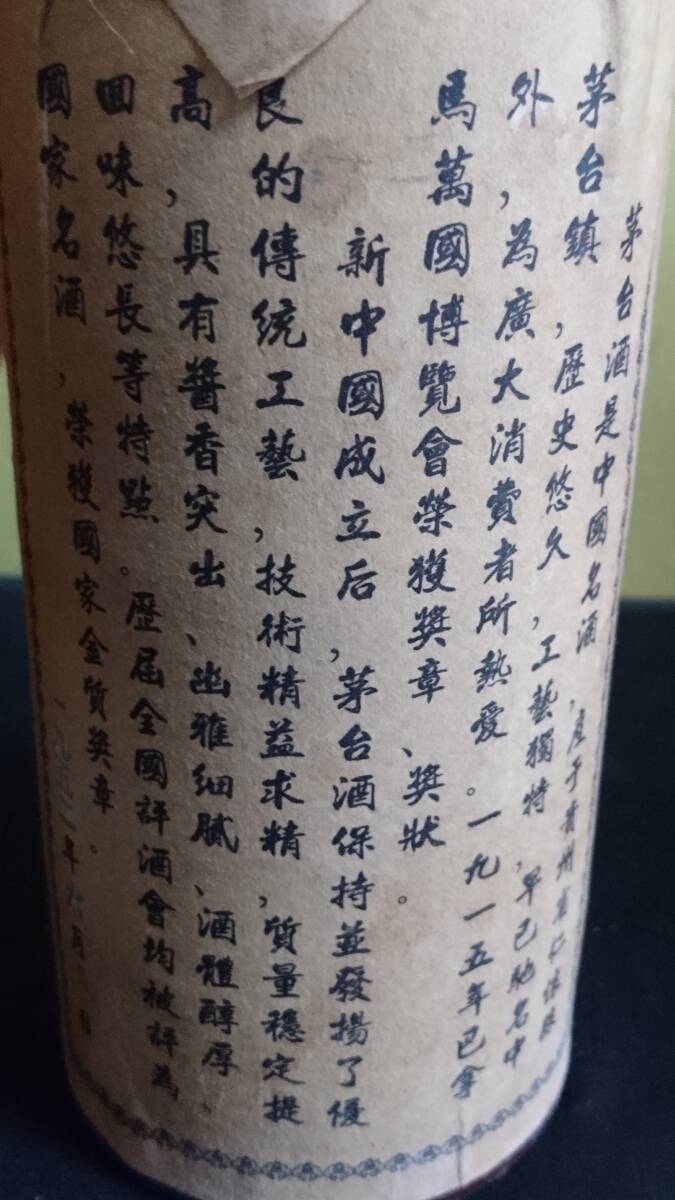 茅台酒是中國名酒,產于貴州省仁懷縣
茅台鎮,歷史悠久,工藝獨特,早已馳名中
外,為廣大消費者所熱愛。一九一五年巴拿
馬萬國博覽會榮獲獎章、獎狀。
新中國成立后,茅台酒保持並發揚了優
良的傳統工藝,技術精益求精,質量穩定提
高,具有醬香突出、幽雅細膩、酒體醇厚、
回味悠長等特點。歷屆全國評酒會均被評為
國家名酒,榮獲國家金質獎章。
一九 二年六月 日